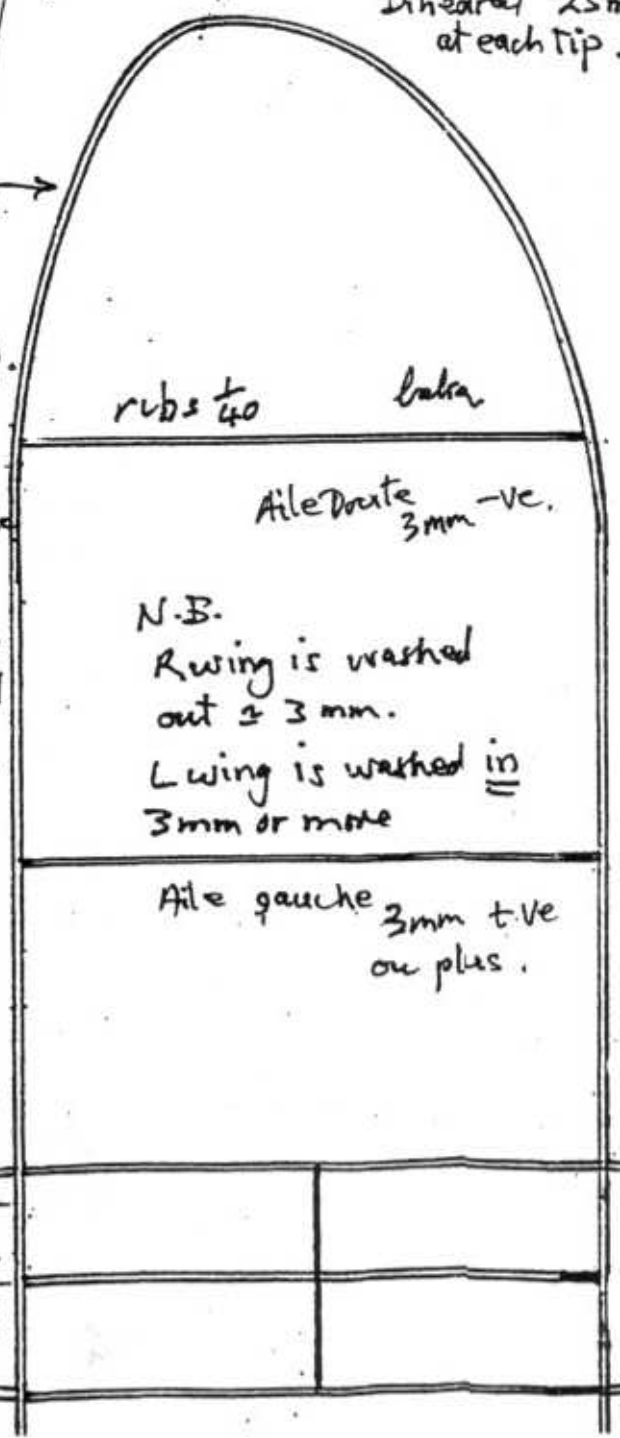 Dihedral 25m
at each tip.
rubs 1/40 balsa
Aile Droite
3mm -ve.
N.B.
R wing is washed
out ± 3 mm.
L wing is washed in
3mm or more
Aile gauche 3mm +ve
ou plus.